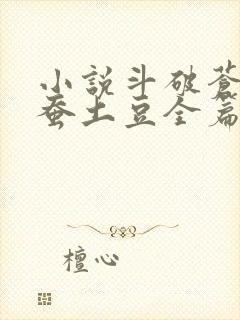 小說斗破蒼
蚕土豆全篇
檀心